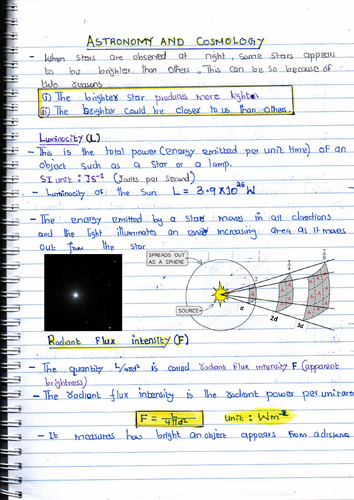 ASTRONOMY AND COSMOLOGY
- When stars are observed at night, some stars appears
to be brighter than others. This can be so because of
two reasons
(i) The brighter star produces more lighter
(ii) The Brighter could be closer to us than others.
Luminocity (L)
- This is the total power (energy emitted per unit time) of an
object such as a star or a lamp.
SI unit : JS⁻¹ (Joules per Second)
- Luminosity of the Sun L = 3.9 × 10²⁶ W
- The energy emitted by a star moves in all directions
and the light illuminates an increasing area as it moves
out from the star
SPREADS OUT
AS A SPHERE
SOURCE
d
2d
3d
Radiant Flux intensity (F)
- The quantity L/4πd² is called radiant flux intensity F (apparent
brightness)
- The radiant flux intensity is the radiant power per unit area
F = L/4πd² unit : Wm⁻²
- It measures how bright an object appears from a distance